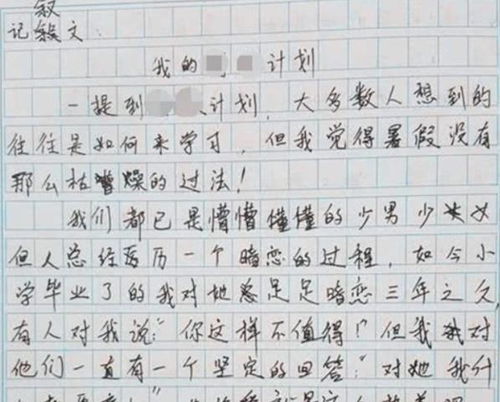 叙
记文
我的计划
一提到计划，大多数人想到的
往往是如何来学习，但我觉得暑假没有
那么枯燥的过法！
我们都已是懵懵懂懂的少男少女
但人总经历一个暗恋的过程，如今小
学毕业了的我对她足足暗恋三年之久，
有人对我说：“你这样不值得！”但我对
他们一直有一个坚定的回答：“对她我什